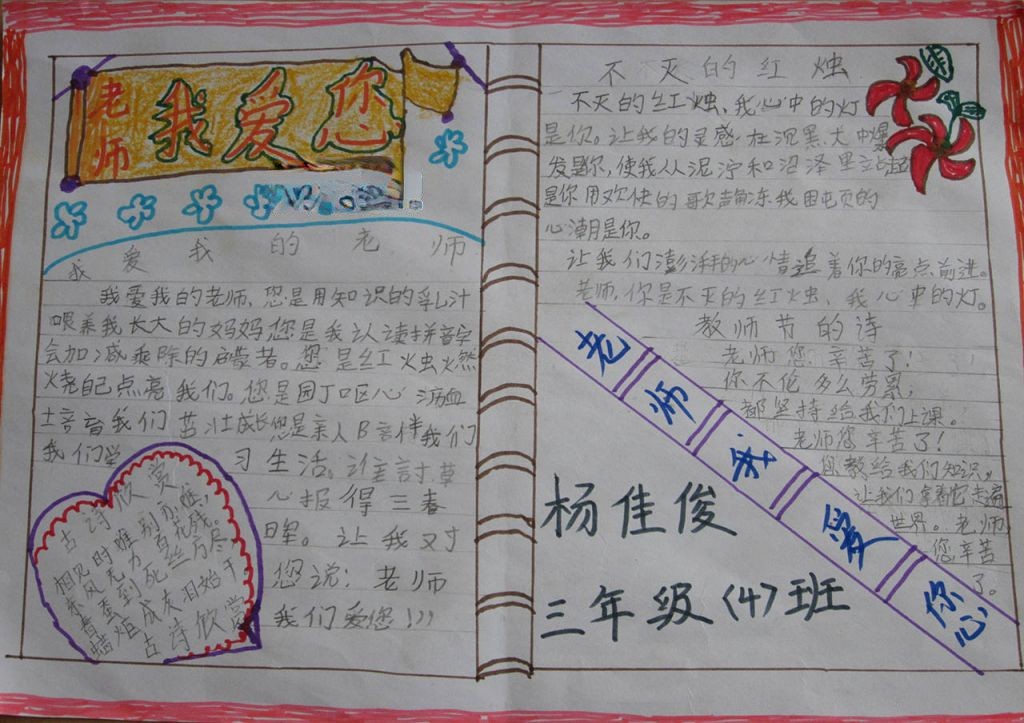 老师
我爱您
我爱我的老师
我爱我的老师,您是用知识的乳汁
喂养我长大的妈妈您是我认读拼音学
会加减乘除的启蒙者。您是红火虫火燃
烧自己点亮我们。您是园丁呕心沥血
培育我们茁壮成长您是亲人陪伴我们
我们学习生活。谁討草
心报得三春
晖。让我对
您说:老师
我们爱您!!!
古诗欣赏
相见时难别亦难,
东风无力百花残。
春蚕到死丝方尽
蜡炬成灰泪始干
古诗欣赏
不灭的红烛
不灭的红烛、我心中的灯
是你。让我的灵感在沉黑大中爆
发是你,使我从泥泞和沼泽里站起
是你用欢快的歌声
心潮是你。
让我们澎湃的心情追着你的亮点前进。
老师,你是不灭的红烛、我心中的灯。
教师节的诗
老师您辛苦了!
你不伦多么劳累,
都坚持给我们上课。
老师您辛苦了!
您教给我们知识,
让我们拿着它走遍
世界。老师
您辛苦
了。
老师我爱你
杨佳俊
三年级(4)班